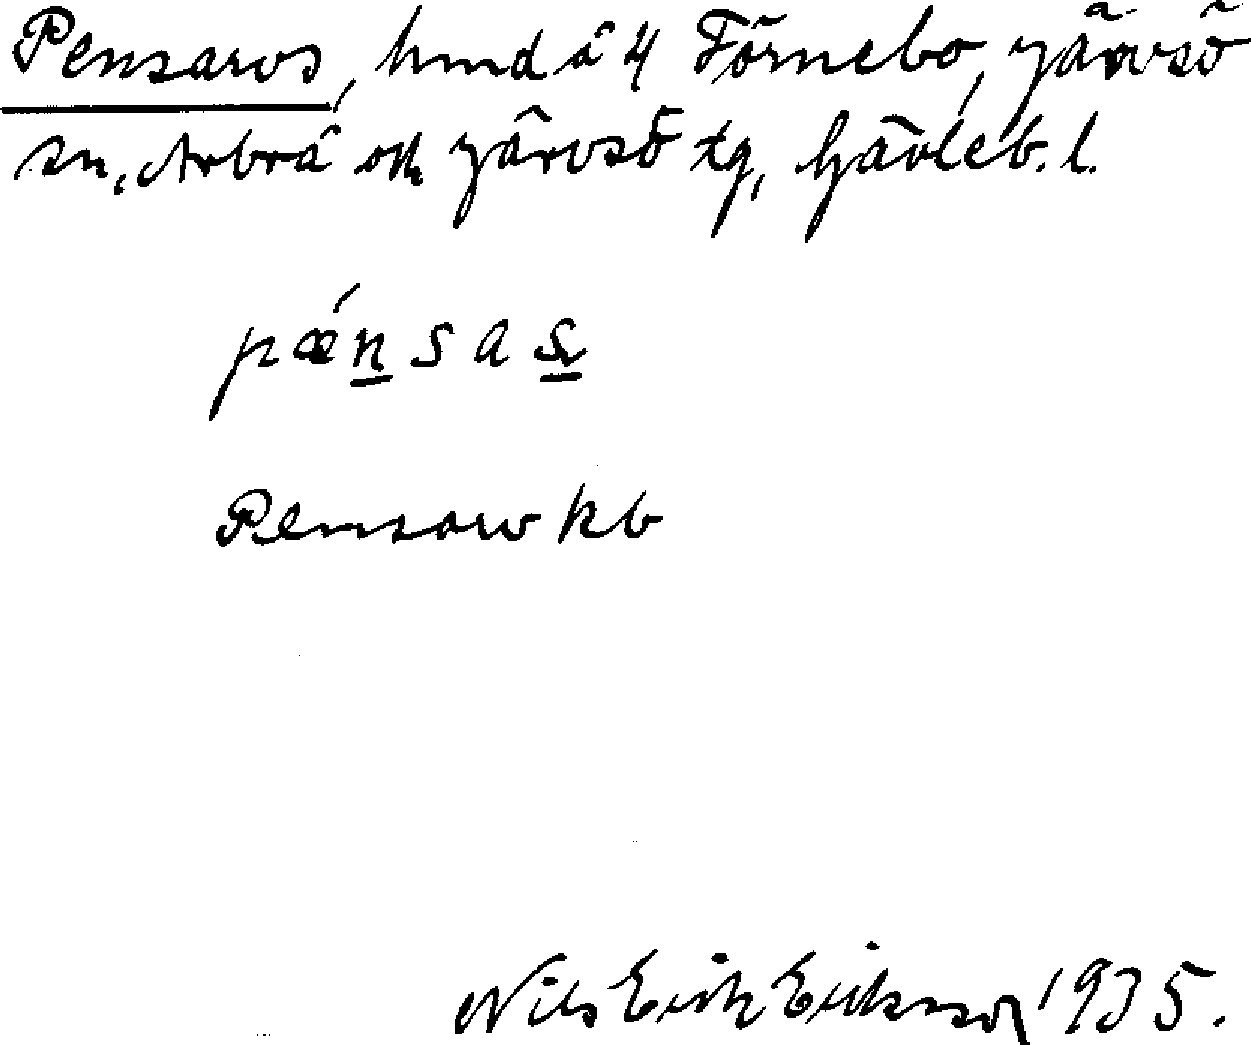 Pensarvs, hmd å 4 Förnebo, Järvsö
sn, Arbrå och Järvsö tg, Gävleb. l.
pǽnsas
Pensarv kb
Nils Erik Eriksson 1935.